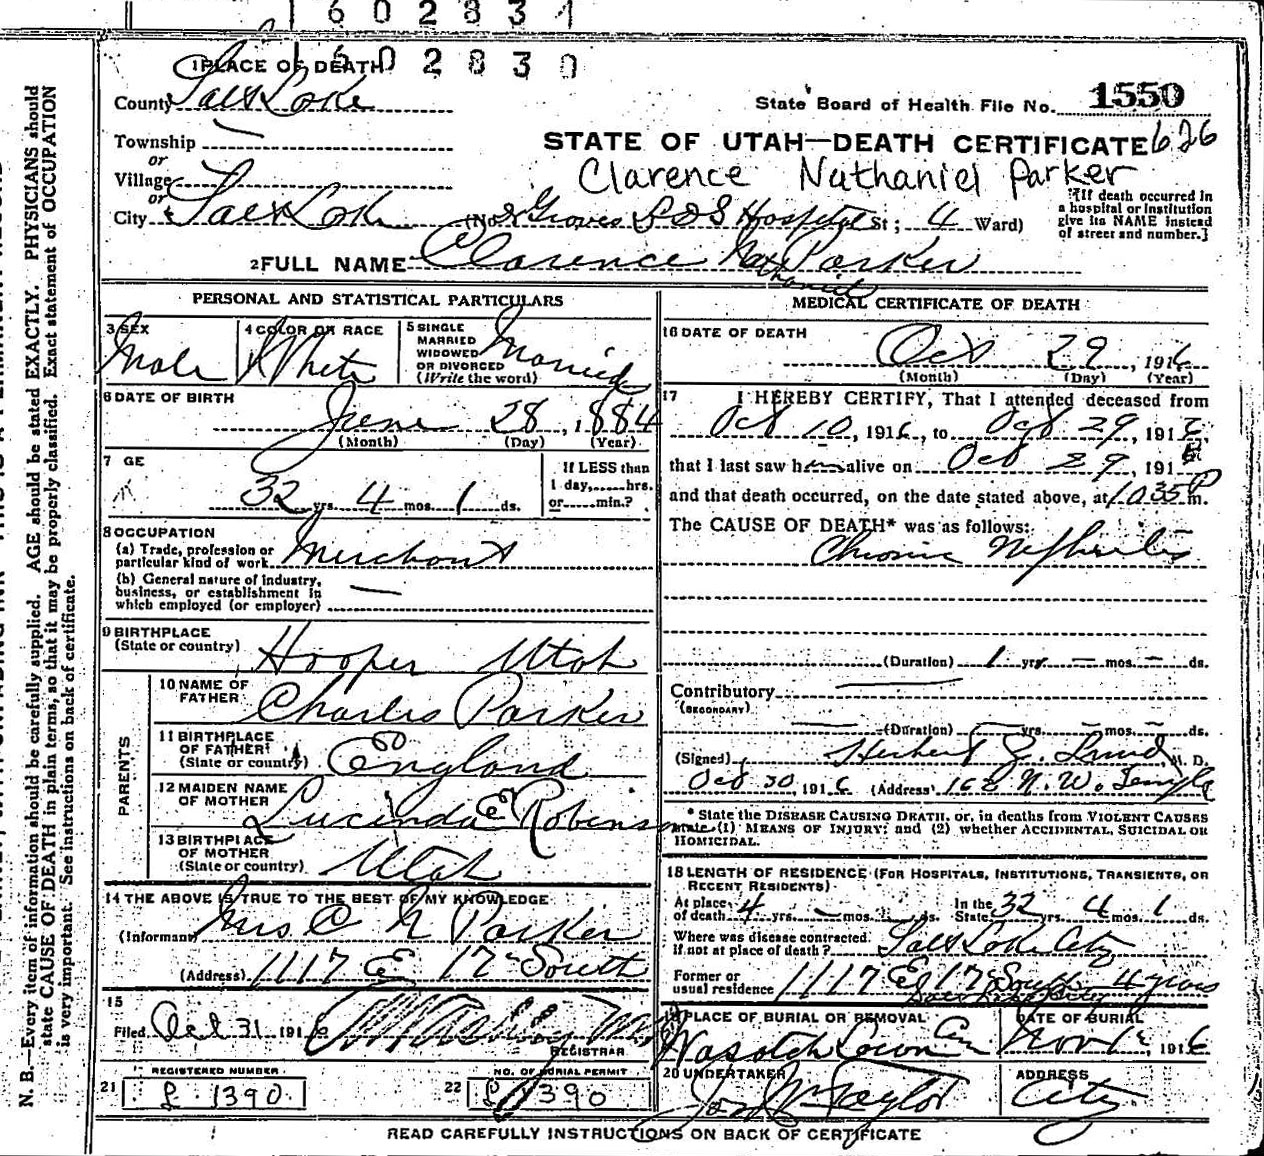 602834
602830
1 PLACE OF DEATH
County Salt Lake
State Board of Health File No. 1550
Township —
STATE OF UTAH—DEATH CERTIFICATE 626
or
Village
Clarence Nathaniel Parker
or
City Salt Lake (No. Groves L D S Hospital St; 4 Ward)
[If death occurred in
a hospital or institution
give its NAME instead
of street and number.]
2 FULL NAME Clarence Nathaniel Parker
PERSONAL AND STATISTICAL PARTICULARS
3 SEX
Male
4 COLOR OR RACE
White
5 SINGLE
MARRIED
WIDOWED
OR DIVORCED
(Write the word)
Married
6 DATE OF BIRTH
June 28, 1884
(Month) (Day) (Year)
7 GE
32 yrs. 4 mos. 1 ds.
If LESS than
1 day,......hrs.
or......min.?
8 OCCUPATION
(a) Trade, profession or
particular kind of work Merchant
(b) General nature of industry,
business, or establishment in
which employed (or employer) —
9 BIRTHPLACE
(State or country) Hooper Utah
PARENTS
10 NAME OF
FATHER Charles Parker
11 BIRTHPLACE
OF FATHER
(State or country) England
12 MAIDEN NAME
OF MOTHER Lucinda E Robinson
13 BIRTHPLACE
OF MOTHER
(State or country) Utah
14 THE ABOVE IS TRUE TO THE BEST OF MY KNOWLEDGE
(Informant) Mrs C N Parker
(Address) 1117 E 17th South
15
Filed Oct 31 1916
REGISTRAR
21 REGISTERED NUMBER
1390
22 NO. OF BURIAL PERMIT
1390
MEDICAL CERTIFICATE OF DEATH
16 DATE OF DEATH
Oct 29, 1916
(Month) (Day) (Year)
17 I HEREBY CERTIFY, That I attended deceased from
Oct 10, 1916, to Oct 29, 191
that I last saw h alive on Oct 29, 191
and that death occurred, on the date stated above, at 1035 P m.
The CAUSE OF DEATH* was as follows:
Chronic Nephritis
(Duration) 1 yrs — mos — ds.
Contributory
(SECONDARY)
— (Duration) — yrs. — mos. — ds.
(Signed) Herbert Z. Lund M. D.
Oct 30, 1916 (Address) 162 N. W. Temple
* State the DISEASE CAUSING DEATH, or, in deaths from VIOLENT CAUSES
state (1) MEANS OF INJURY; and (2) whether ACCIDENTAL, SUICIDAL OR
HOMICIDAL.
18 LENGTH OF RESIDENCE (FOR HOSPITALS, INSTITUTIONS, TRANSIENTS, OR
RECENT RESIDENTS)
At place
of death 4 yrs. — mos. ds. In the
State 32 yrs. 4 mos. 1 ds.
Where was disease contracted
If not at place of death? Salt Lake City
Former or
usual residence 1117 E 17th South 4 years
Salt Lake City
19 PLACE OF BURIAL OR REMOVAL
Wasatch Lawn Cem
DATE OF BURIAL
Nov 1, 1916
20 UNDERTAKER
Taylor
ADDRESS
City
READ CAREFULLY INSTRUCTIONS ON BACK OF CERTIFICATE
N. B.—Every item of information should be carefully supplied. AGE should be stated EXACTLY. PHYSICIANS should
state CAUSE OF DEATH in plain terms, so that it may be properly classified. Exact statement of OCCUPATION
is very important. See instructions on back of certificate.